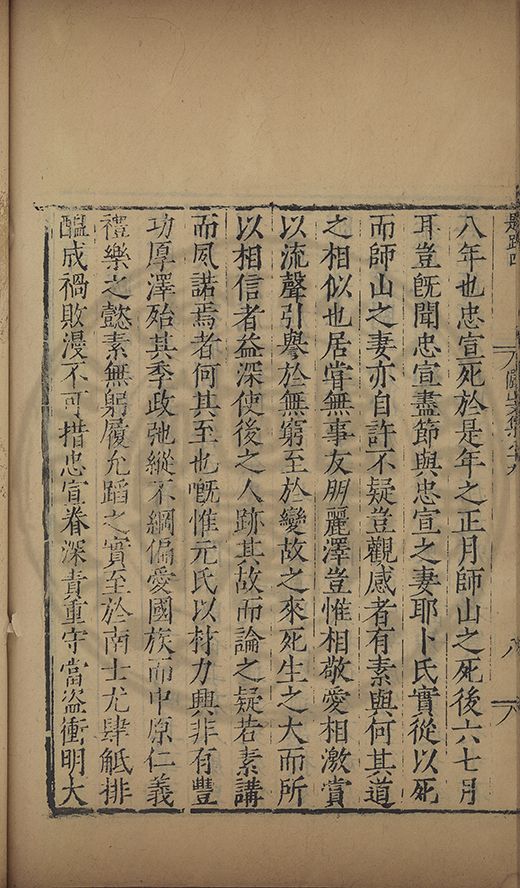 八年也忠宣死於是年之正月師山之死後六七月
耳豈旣聞忠宣盡節與忠宣之妻耶卜氏實從以死
而師山之妻亦自許不疑豈觀感者有素與何其道
之相似也居甞無事友朋麗澤豈惟相敬愛相激賞
以流聲引譽於無窮至於變故之來死生之大而所
以相信者益深使後之人跡其故而論之疑若素講
而夙諾焉者何其至也嘅惟元氏以材力興非有豐
功厚澤殆其季政弛縱不綱偏愛國族而中原仁義
禮樂之懿素無躬履允蹈之實至於南士尤肆觝排
醖成禍敗漫不可措忠宣眷深責重守當盜衝明大